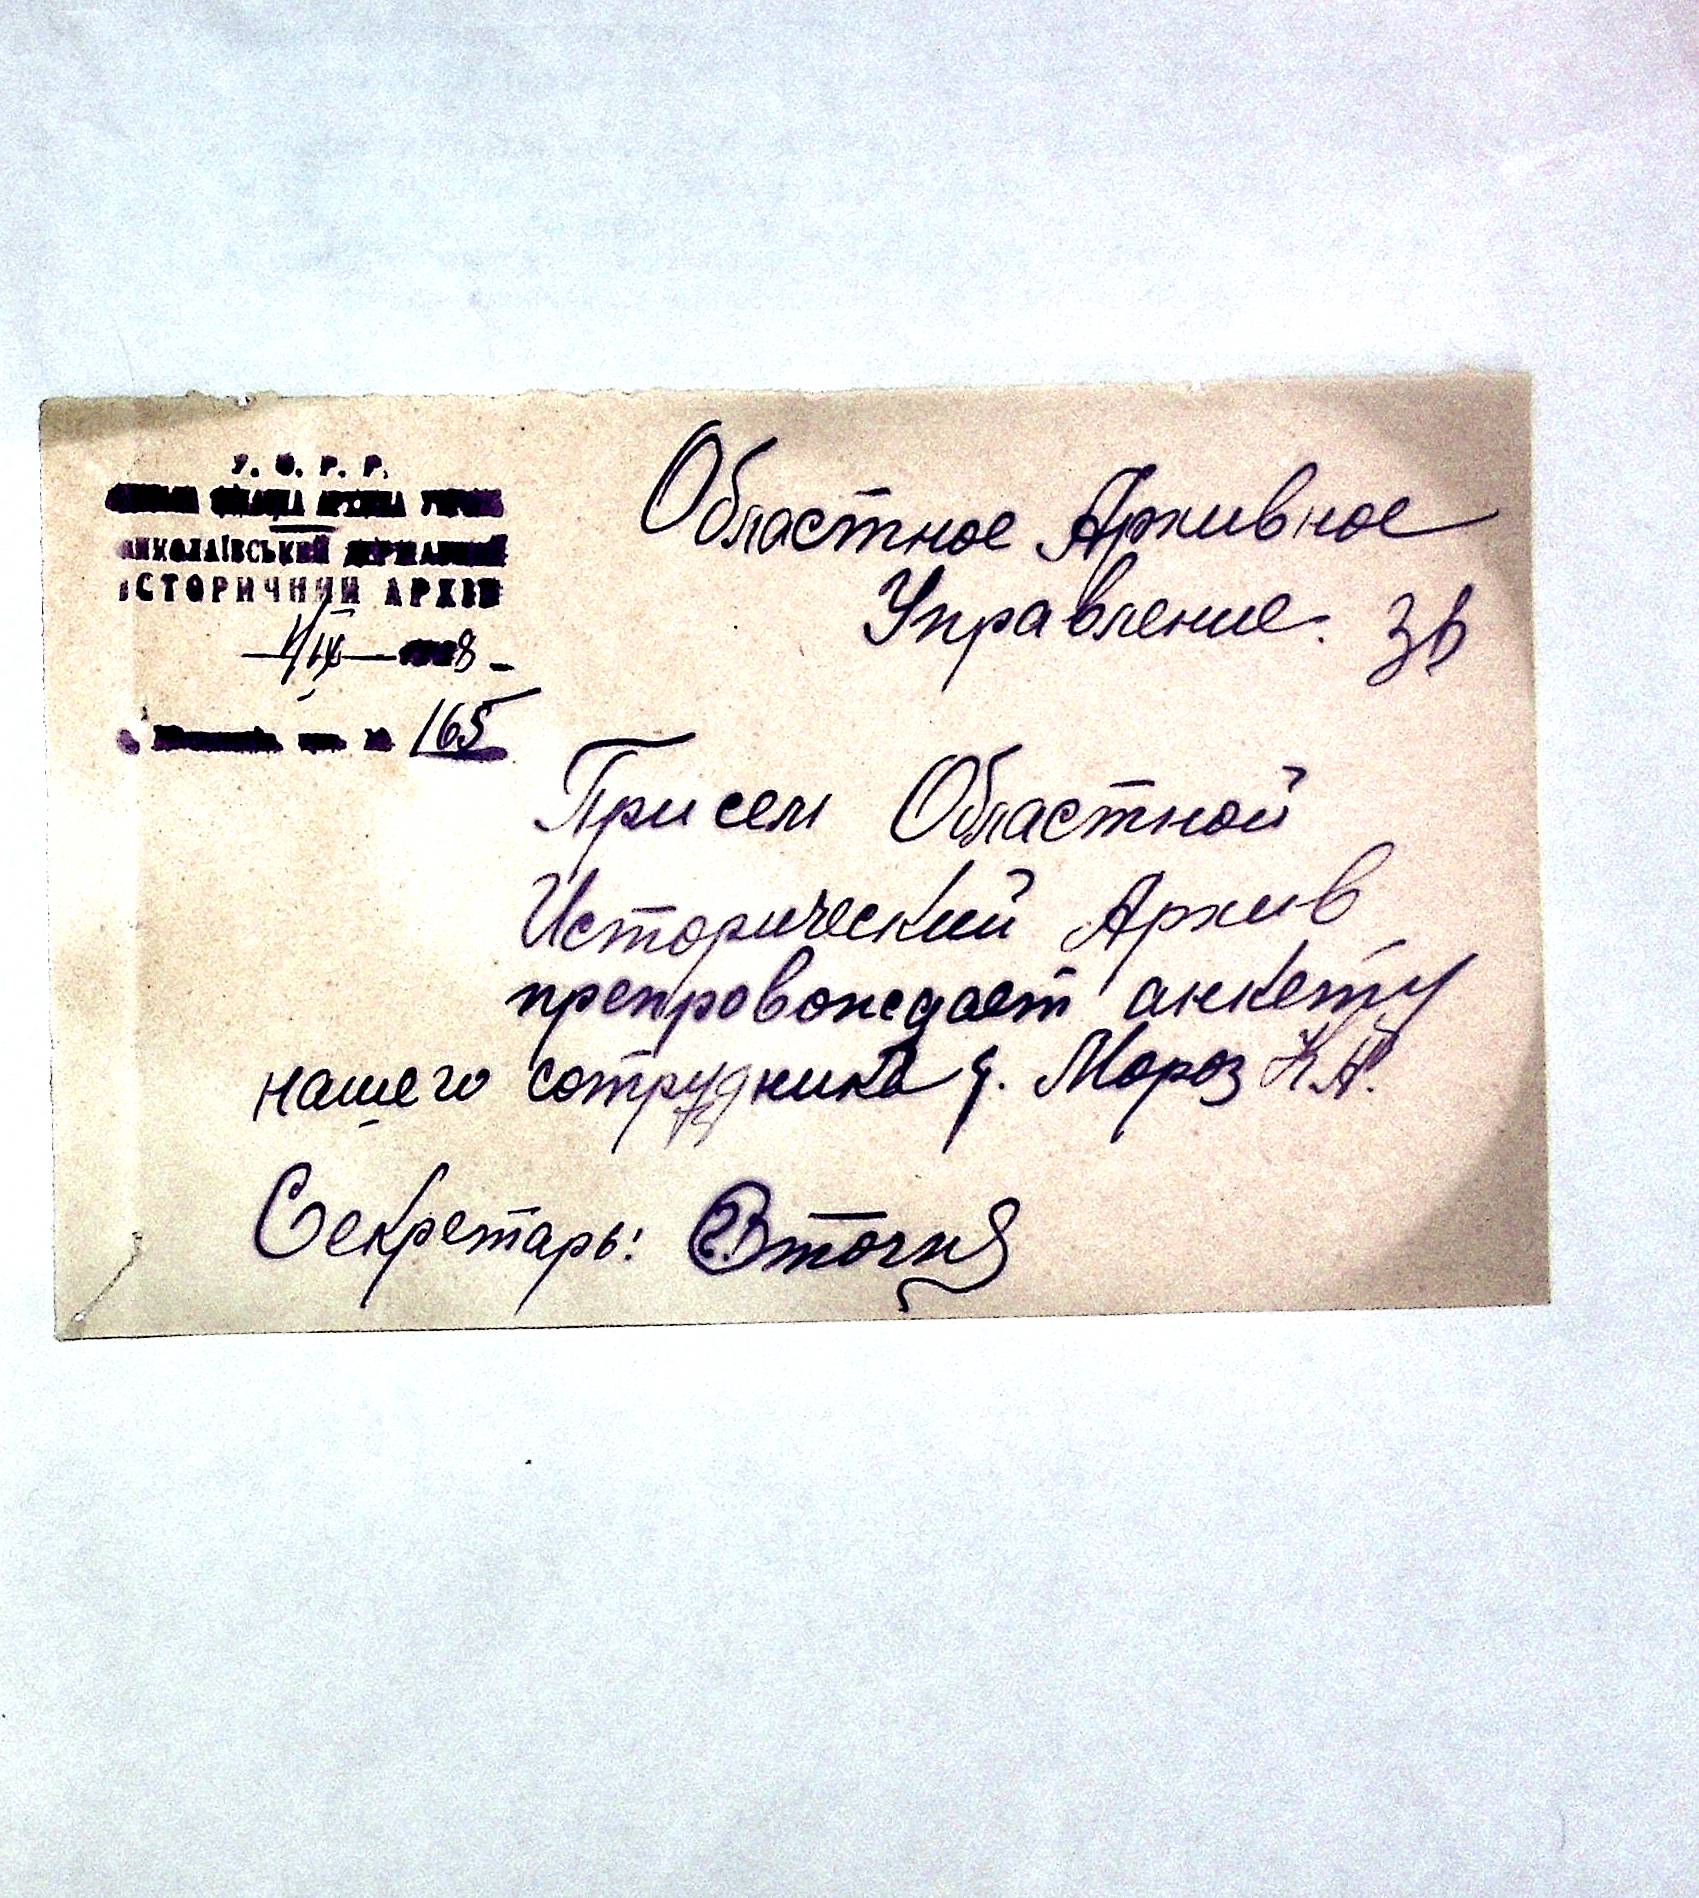 У. С. Р. Р.
МИКОЛАЇВСЬКИЙ ДЕРЖАВНИЙ
ІСТОРИЧНИЙ АРХІВ
165
Областное Архивное
Управление. 36
При сем Областной
Исторический Архив
препровождает анкету
нашего сотрудника т. Мороз К.А.
Секретарь: